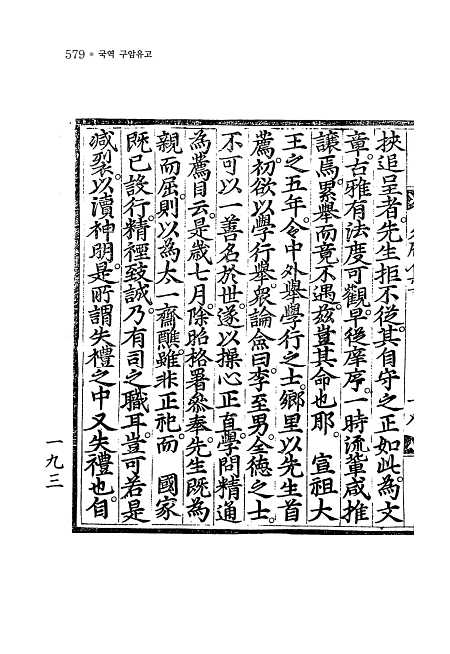 579 ● 국역 구암유고
挾追呈者先生拒不從其自守之正如此爲文
章古雅有法度可觀早從庠序一時流輩咸推
讓焉累擧而竟不遇玆豈其命也耶 宣祖大
王之五年令中外擧學行之士鄕里以先生首
薦初欲以學行擧衆論僉曰李至男全德之士
不可以一善名於世遂以操心正直學問精通
為薦目云是歲七月除昭格署參奉先生既為
親而屈則以為太一齋醮雖非正祀而 國家
既已設行精禋致誠乃有司之職耳豈可若是
減裂以瀆神明是所謂失禮之中又失禮也自
一九三